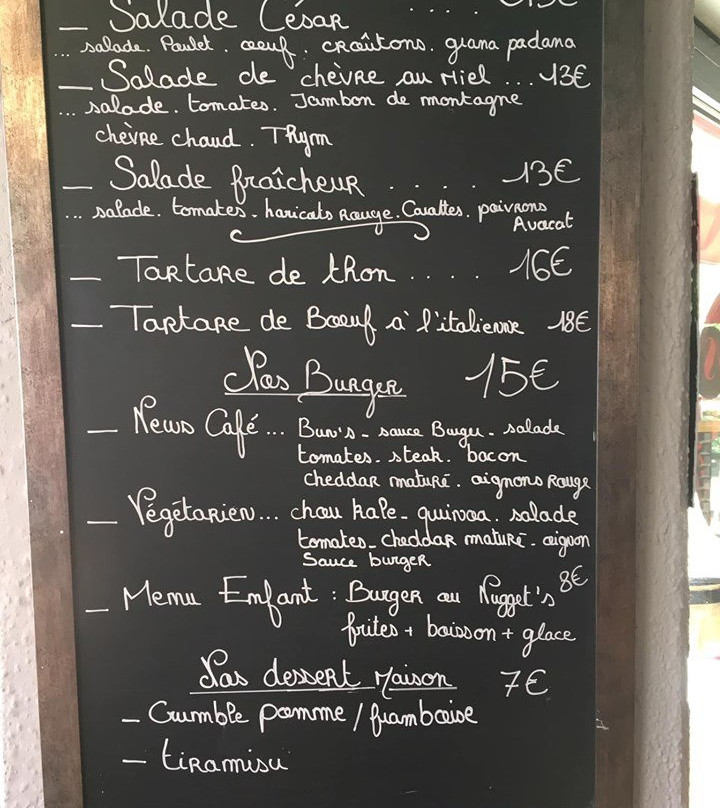 — Salade César
... salade. Poulet. oeuf. croûtons. grana padana
— Salade de chèvre au Miel ... 13€
... salade. tomates. Jambon de montagne
chèvre chaud. Thym
— Salade fraîcheur ..... 13€
... salade. tomates. haricots Rouge. Carottes. poivrons
Avocat
— Tartare de thon .... 16€
— Tartare de Boeuf à l'italienne 18€
Nos Burger 15€
— News Café ... Bun's - sauce Burger - salade
tomates - steak. bacon
cheddar maturé. oignons Rouge
— Végétarien ... chou kale - quinoa. salade
tomates - cheddar maturé - oignon
Sauce burger
— Menu Enfant : Burger ou Nugget's 8€
frites + boisson + glace
Nos dessert Maison 7€
— Crumble pomme / framboise
— tiramisu